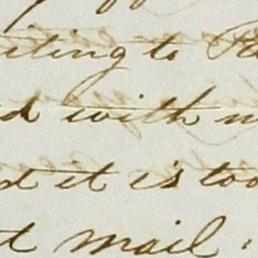 iting to
d with
d it is too
t mail.